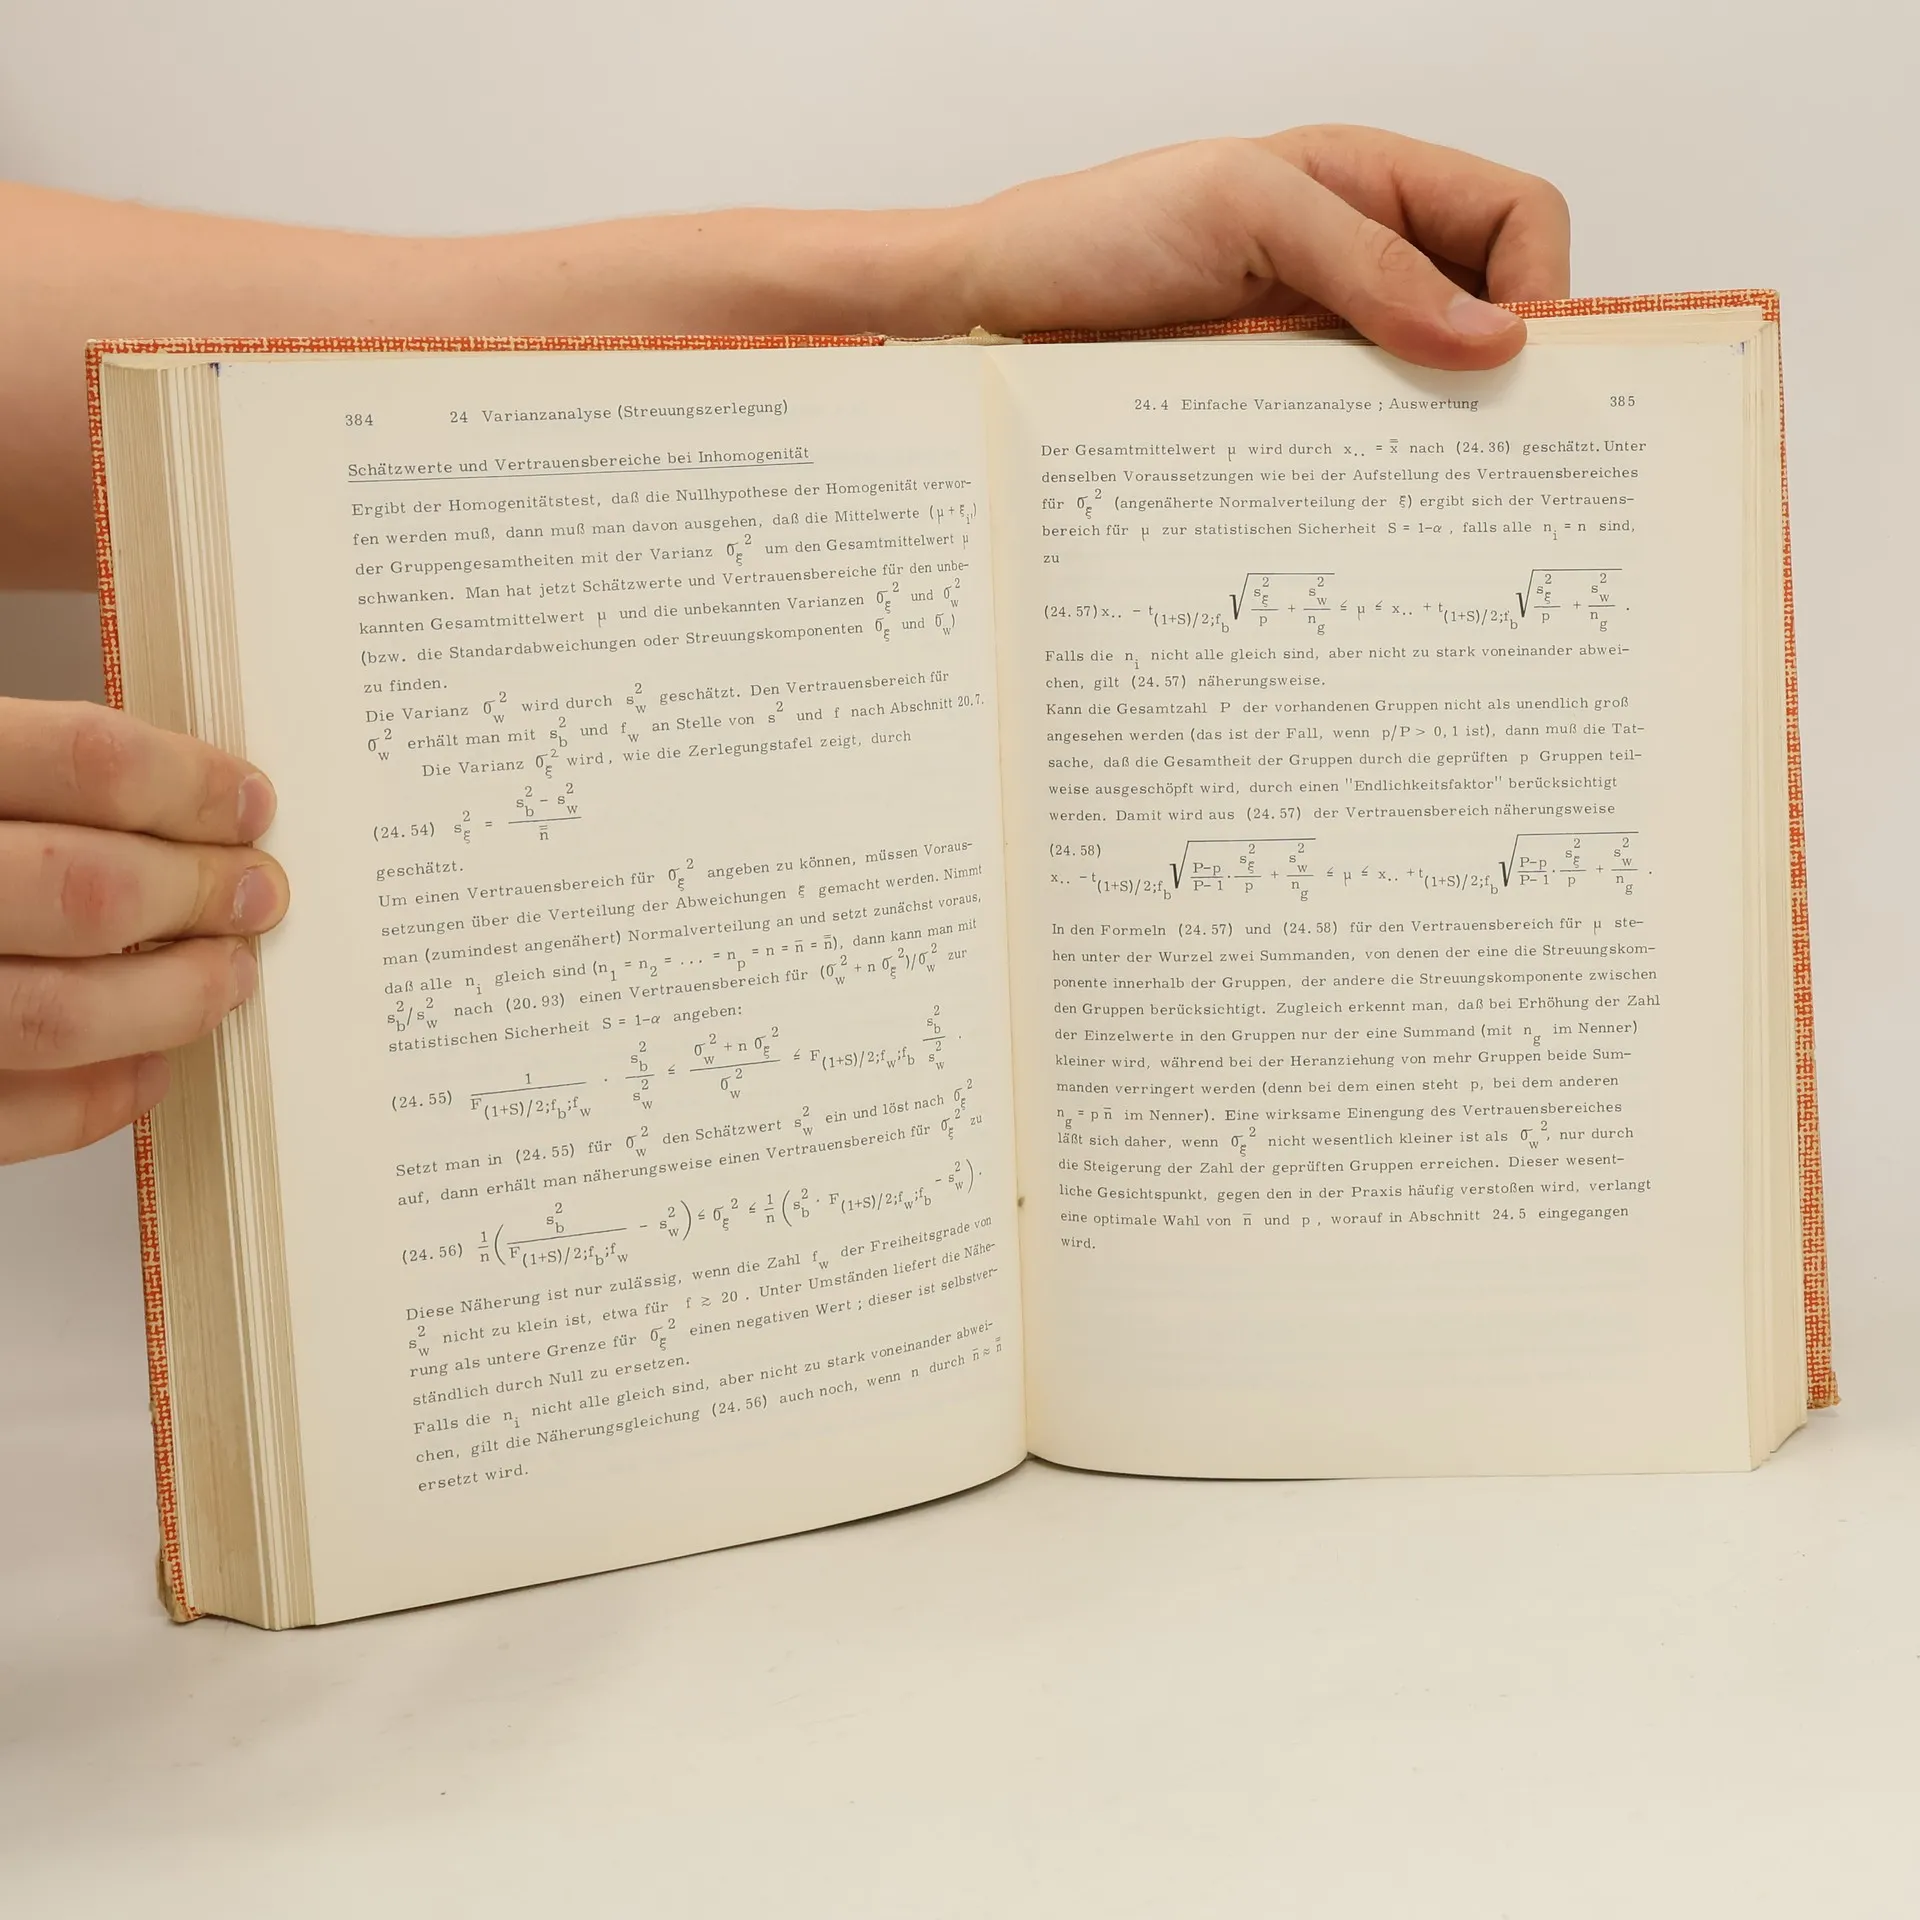 384 24 Varianzanalyse (Streuungszerlegung)
Schätzwerte und Vertrauensbereiche bei Inhomogenität
Ergibt der Homogenitätstest, daß die Nullhypothese der Homogenität verwor-
fen werden muß, dann muß man davon ausgehen, daß die Mittelwerte (μ + ξ_i)
der Gruppengesamtheiten mit der Varianz σ_ξ² um den Gesamtmittelwert μ
schwanken. Man hat jetzt Schätzwerte und Vertrauensbereiche für den unbe-
kannten Gesamtmittelwert μ und die unbekannten Varianzen σ_ξ² und σ_w²
(bzw. die Standardabweichungen oder Streuungskomponenten σ_ξ und σ_w)
zu finden.
Die Varianz σ_w² wird durch s_w² geschätzt. Den Vertrauensbereich für
σ_w² erhält man mit s_b² und f_w an Stelle von s² und f nach Abschnitt 20.7.
Die Varianz σ_ξ² wird, wie die Zerlegungstafel zeigt, durch
(24.54) s_ξ² = (s_b² - s_w²) / n̿
geschätzt.
Um einen Vertrauensbereich für σ_ξ² angeben zu können, müssen Voraus-
setzungen über die Verteilung der Abweichungen ξ gemacht werden. Nimmt
man (zumindest angenähert) Normalverteilung an und setzt zunächst voraus,
daß alle n_i gleich sind (n_1 = n_2 = ... = n_p = n = n̄ = n̿), dann kann man mit
s_b²/s_w² nach (20.93) einen Vertrauensbereich für (σ_w² + n σ_ξ²)/σ_w² zur
statistischen Sicherheit S = 1-α angeben:
(24.55) 1/F_(1+S)/2;f_b;f_w · s_b²/s_w² ≤ (σ_w² + n σ_ξ²)/σ_w² ≤ F_(1+S)/2;f_w;f_b s_b²/s_w² .
Setzt man in (24.55) für σ_w² den Schätzwert s_w² ein und löst nach σ_ξ²
auf, dann erhält man näherungsweise einen Vertrauensbereich für σ_ξ² zu
(24.56) 1/n (s_b²/F_(1+S)/2;f_b;f_w - s_w²) ≤ σ_ξ² ≤ 1/n (s_b² · F_(1+S)/2;f_w;f_b - s_w²).
Diese Näherung ist nur zulässig, wenn die Zahl f_w der Freiheitsgrade von
s_w² nicht zu klein ist, etwa für f ≳ 20. Unter Umständen liefert die Nähe-
rung als untere Grenze für σ_ξ² einen negativen Wert; dieser ist selbstver-
ständlich durch Null zu ersetzen.
Falls die n_i nicht alle gleich sind, aber nicht zu stark voneinander abwei-
chen, gilt die Näherungsgleichung (24.56) auch noch, wenn n durch n̄ ≈ n̿
ersetzt wird.
24.4 Einfache Varianzanalyse; Auswertung 385
Der Gesamtmittelwert μ wird durch x.. = x̿ nach (24.36) geschätzt. Unter
denselben Voraussetzungen wie bei der Aufstellung des Vertrauensbereiches
für σ_ξ² (angenäherte Normalverteilung der ξ) ergibt sich der Vertrauens-
bereich für μ zur statistischen Sicherheit S = 1-α, falls alle n_i = n sind,
zu
(24.57) x.. - t_(1+S)/2;f_b √(s_ξ²/p + s_w²/n_g) ≤ μ ≤ x.. + t_(1+S)/2;f_b √(s_ξ²/p + s_w²/n_g) .
Falls die n_i nicht alle gleich sind, aber nicht zu stark voneinander abwei-
chen, gilt (24.57) näherungsweise.
Kann die Gesamtzahl P der vorhandenen Gruppen nicht als unendlich groß
angesehen werden (das ist der Fall, wenn p/P > 0,1 ist), dann muß die Tat-
sache, daß die Gesamtheit der Gruppen durch die geprüften p Gruppen teil-
weise ausgeschöpft wird, durch einen "Endlichkeitsfaktor" berücksichtigt
werden. Damit wird aus (24.57) der Vertrauensbereich näherungsweise
(24.58)
x.. - t_(1+S)/2;f_b √((P-p)/(P-1) · s_ξ²/p + s_w²/n_g) ≤ μ ≤ x.. + t_(1+S)/2;f_b √((P-p)/(P-1) · s_ξ²/p + s_w²/n_g) .
In den Formeln (24.57) und (24.58) für den Vertrauensbereich für μ ste-
hen unter der Wurzel zwei Summanden, von denen der eine die Streuungskom-
ponente innerhalb der Gruppen, der andere die Streuungskomponente zwischen
den Gruppen berücksichtigt. Zugleich erkennt man, daß bei Erhöhung der Zahl
der Einzelwerte in den Gruppen nur der eine Summand (mit n_g im Nenner)
kleiner wird, während bei der Heranziehung von mehr Gruppen beide Sum-
manden verringert werden (denn bei dem einen steht p, bei dem anderen
n_g = p n̄ im Nenner). Eine wirksame Einengung des Vertrauensbereiches
läßt sich daher, wenn σ_ξ² nicht wesentlich kleiner ist als σ_w², nur durch
die Steigerung der Zahl der geprüften Gruppen erreichen. Dieser wesent-
liche Gesichtspunkt, gegen den in der Praxis häufig verstoßen wird, verlangt
eine optimale Wahl von n̄ und p, worauf in Abschnitt 24.5 eingegangen
wird.